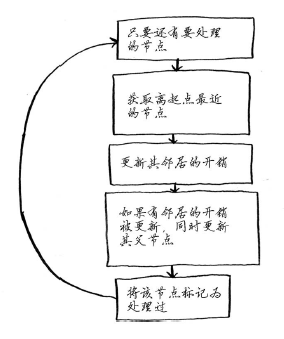 只要还有要处理
的节点
获取离起点最近
的节点
更新其邻居的开销
如果有邻居的开销
被更新，同时更新
其父节点
将该节点标记为
处理过